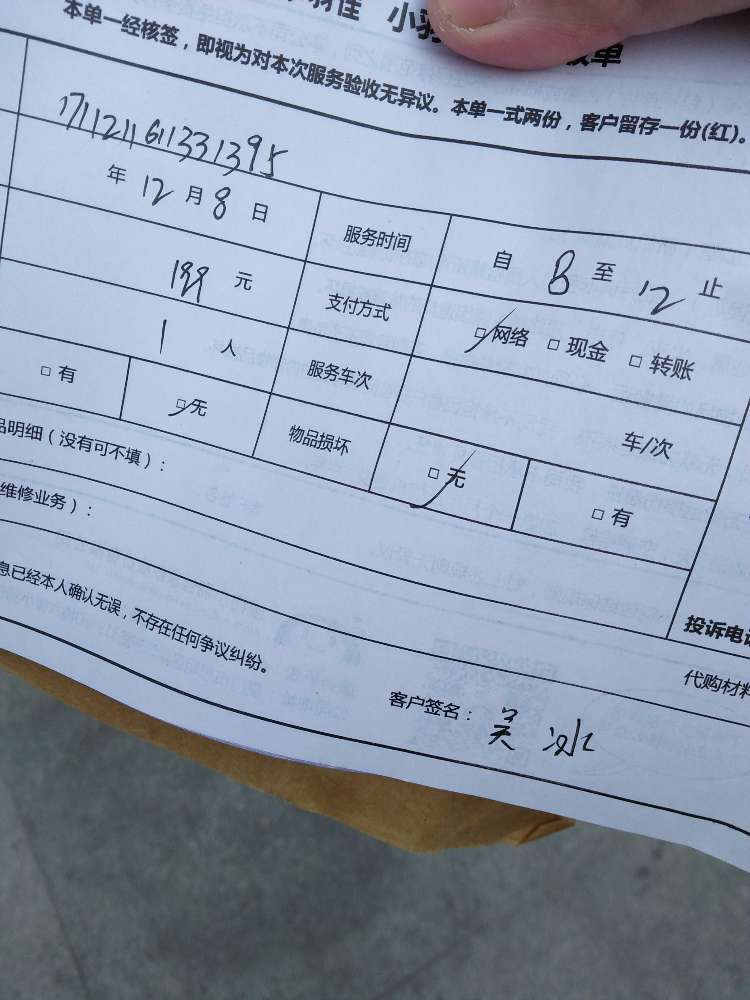 本单一经核签，即视为对本次服务验收无异议。本单一式两份，客户留存一份(红)。
1711211611331395
年 12 月 8 日 服务时间 自 8 至 12 止
199 元 支付方式 □网络 □现金 □转账
1 人 服务车次 车/次
□有 □无 物品损坏 □无 □有
品明细（没有可不填）：
维修业务）：
息已经本人确认无误，不存在任何争议纠纷。
投诉电话
代购材料
客户签名：吴冰